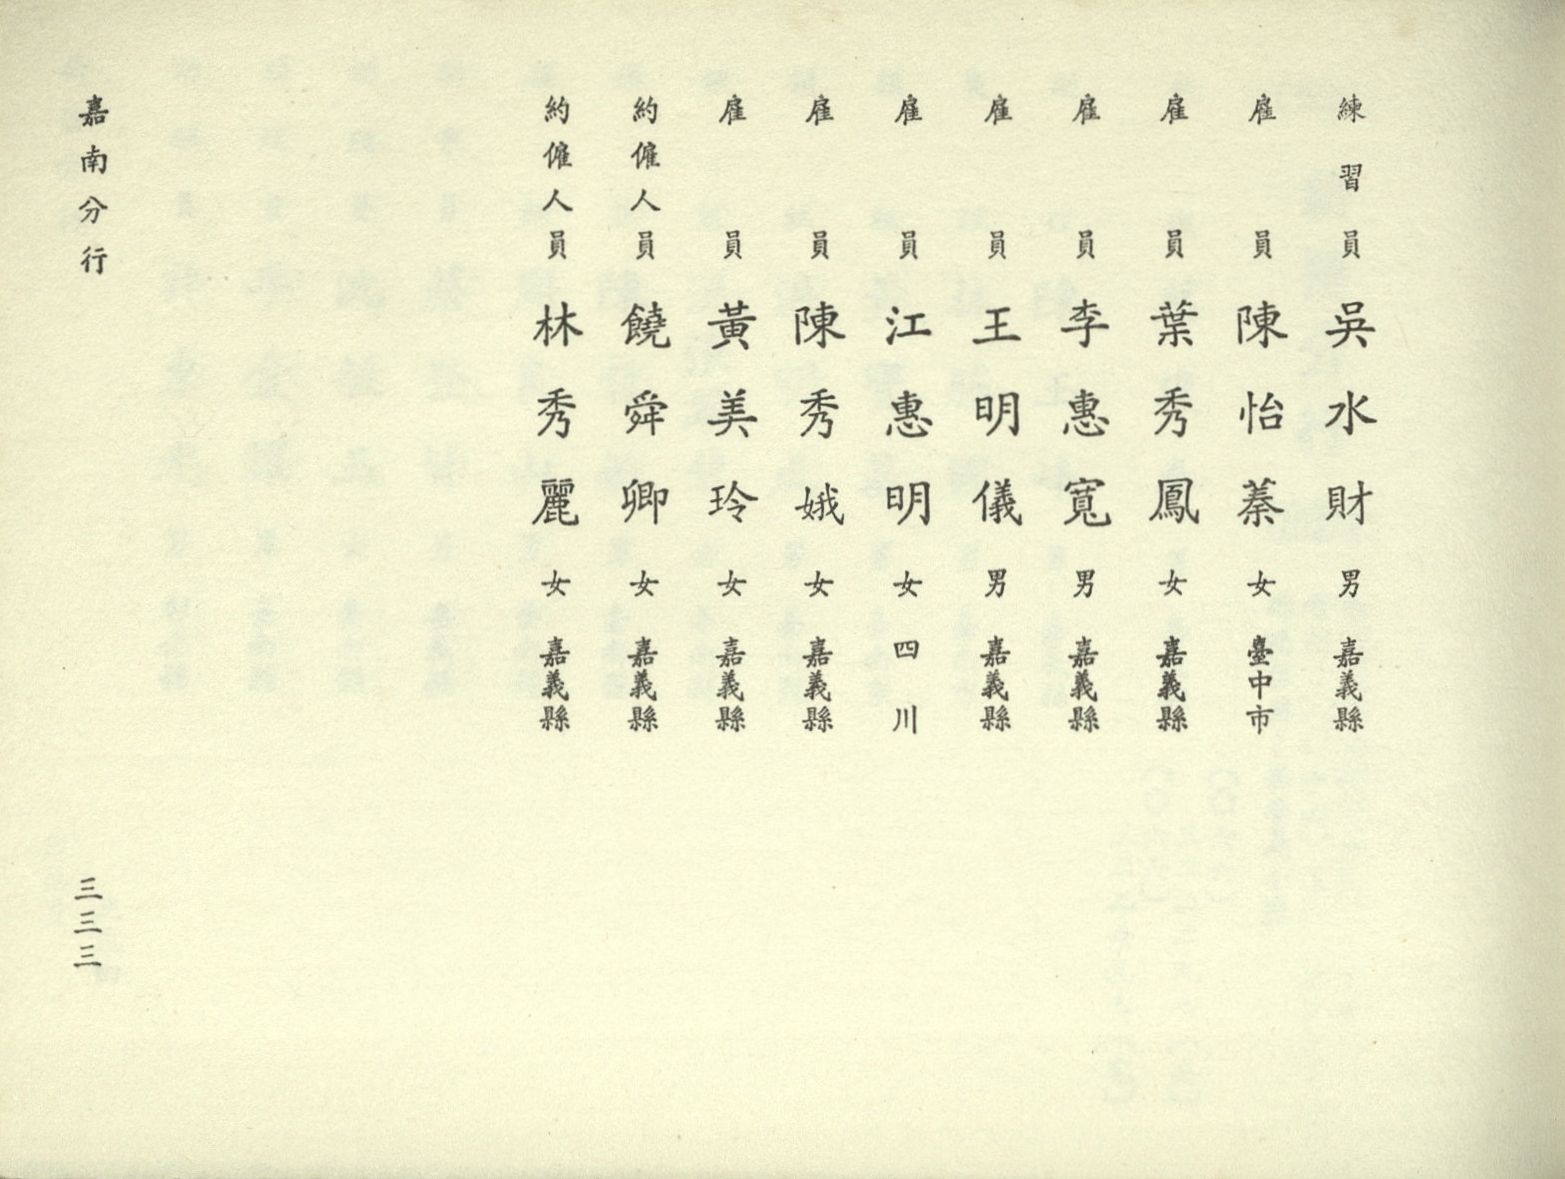 練習員 吳水財 男 嘉義縣
雇員 陳怡蓁 女 臺中市
雇員 葉秀鳳 女 嘉義縣
雇員 李惠寬 男 嘉義縣
雇員 王明儀 男 嘉義縣
雇員 江惠明 女 四川
雇員 陳秀娥 女 嘉義縣
雇員 黃美玲 女 嘉義縣
約僱人員 饒舜卿 女 嘉義縣
約僱人員 林秀麗 女 嘉義縣
嘉南分行
三三三